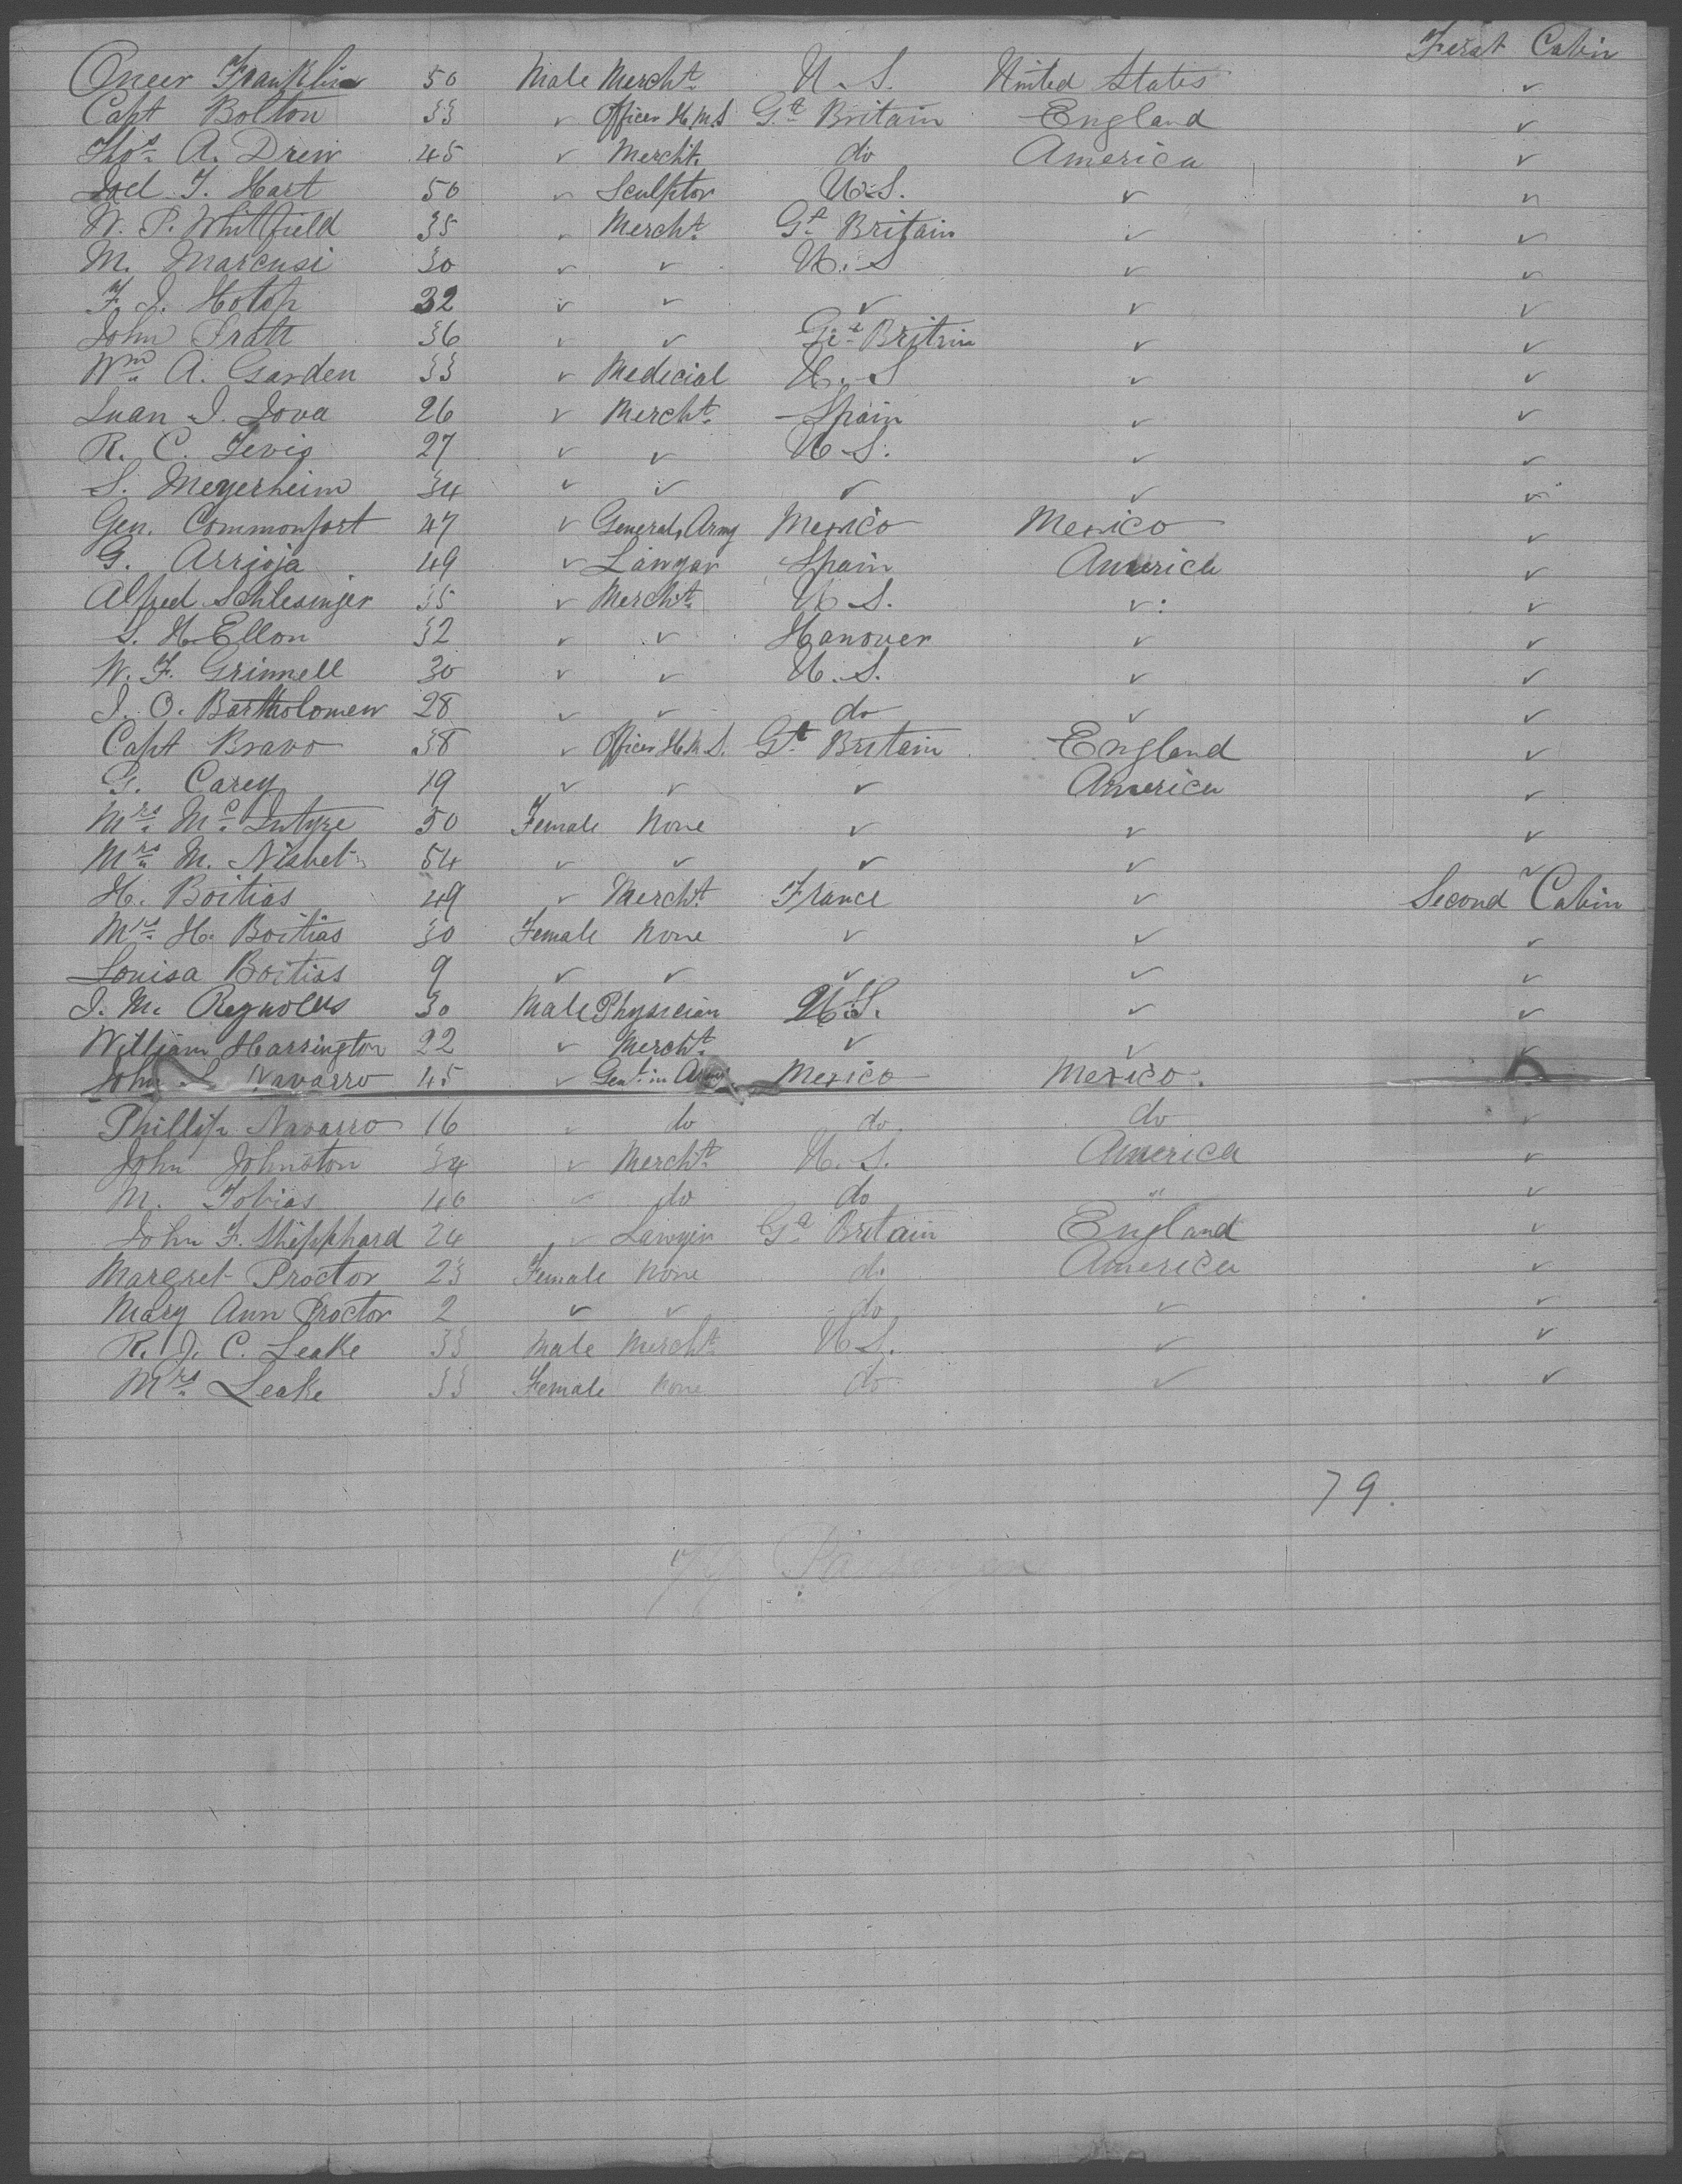 First Cabin
Oneer Franklin 50 Male Mercht. U. S. United States ✓
Capt Bolton 33 ✓ Officer H.M.S Gt Britain England ✓
Thos A. Drew 45 ✓ Mercht. do America ✓
Joel T. Hart 50 ✓ Sculptor U.S. ✓ ✓
W. P. Whitfield 35 ✓ Mercht. Gt Britain ✓ ✓
M. Marcusi 30 ✓ ✓ U.S ✓ ✓
F. J. Hotop 32 ✓ ✓ ✓ ✓ ✓
John 36 ✓ ✓ Gt Britain ✓ ✓
Wm A. Garden 33 ✓ Medecial U.S ✓ ✓
Juan J. Jova 26 ✓ Mercht. Spain ✓ ✓
R. C. Tevis 27 ✓ ✓ U.S. ✓ ✓
S. Meyerheim 34 ✓ ✓ ✓ ✓ ✓
Gen. Commonfort 47 ✓ General, Army Mexico Mexico ✓
G. Arrioja 49 ✓ Lawyar Spain America ✓
Alfred Schlesinger 35 ✓ Mercht. U.S. ✓ ✓
S. H. Ellon 32 ✓ ✓ Hanover ✓ ✓
W. F. Grinnell 30 ✓ ✓ U.S. ✓ ✓
J. O. Bartholomew 28 ✓ ✓ do ✓ ✓
Capt Bravo 38 ✓ Officer H.M.S. Gt Britain England ✓
G. Carey 19 ✓ ✓ ✓ America ✓
Mrs. Mc Intyre 50 Female None ✓ ✓ ✓
Mrs M. Nisbet 54 ✓ ✓ ✓ ✓ ✓
H. Boitias 49 ✓ Mercht. France ✓ Second Cabin
Mrs. H. Boitias 30 Female None ✓ ✓ ✓
Louisa Boitias 9 ✓ ✓ ✓ ✓ ✓
J. M. Reynolds 30 Male Physician U.S. ✓ ✓
William Harrington 22 ✓ Mercht. ✓ ✓ ✓
John S. Navarro 45 ✓ Gent. in Army Mexico Mexico.
Phillip Navarro 16 ✓ do do. do ✓
John Johnston 34 ✓ Mercht. U.S. America ✓
M. Tobias 46 ✓ do do " ✓
John F. Shipphard 24 ✓ Lawyer Gt Britain England ✓
Margret Proctor 23 Female None do America ✓
Mary Ann Proctor 2 ✓ ✓ do ✓ ✓
R. J. C. Leake 33 Male Mercht. U.S. ✓ ✓
Mrs Leake 33 Female None do ✓ ✓
79.
79 Passengers